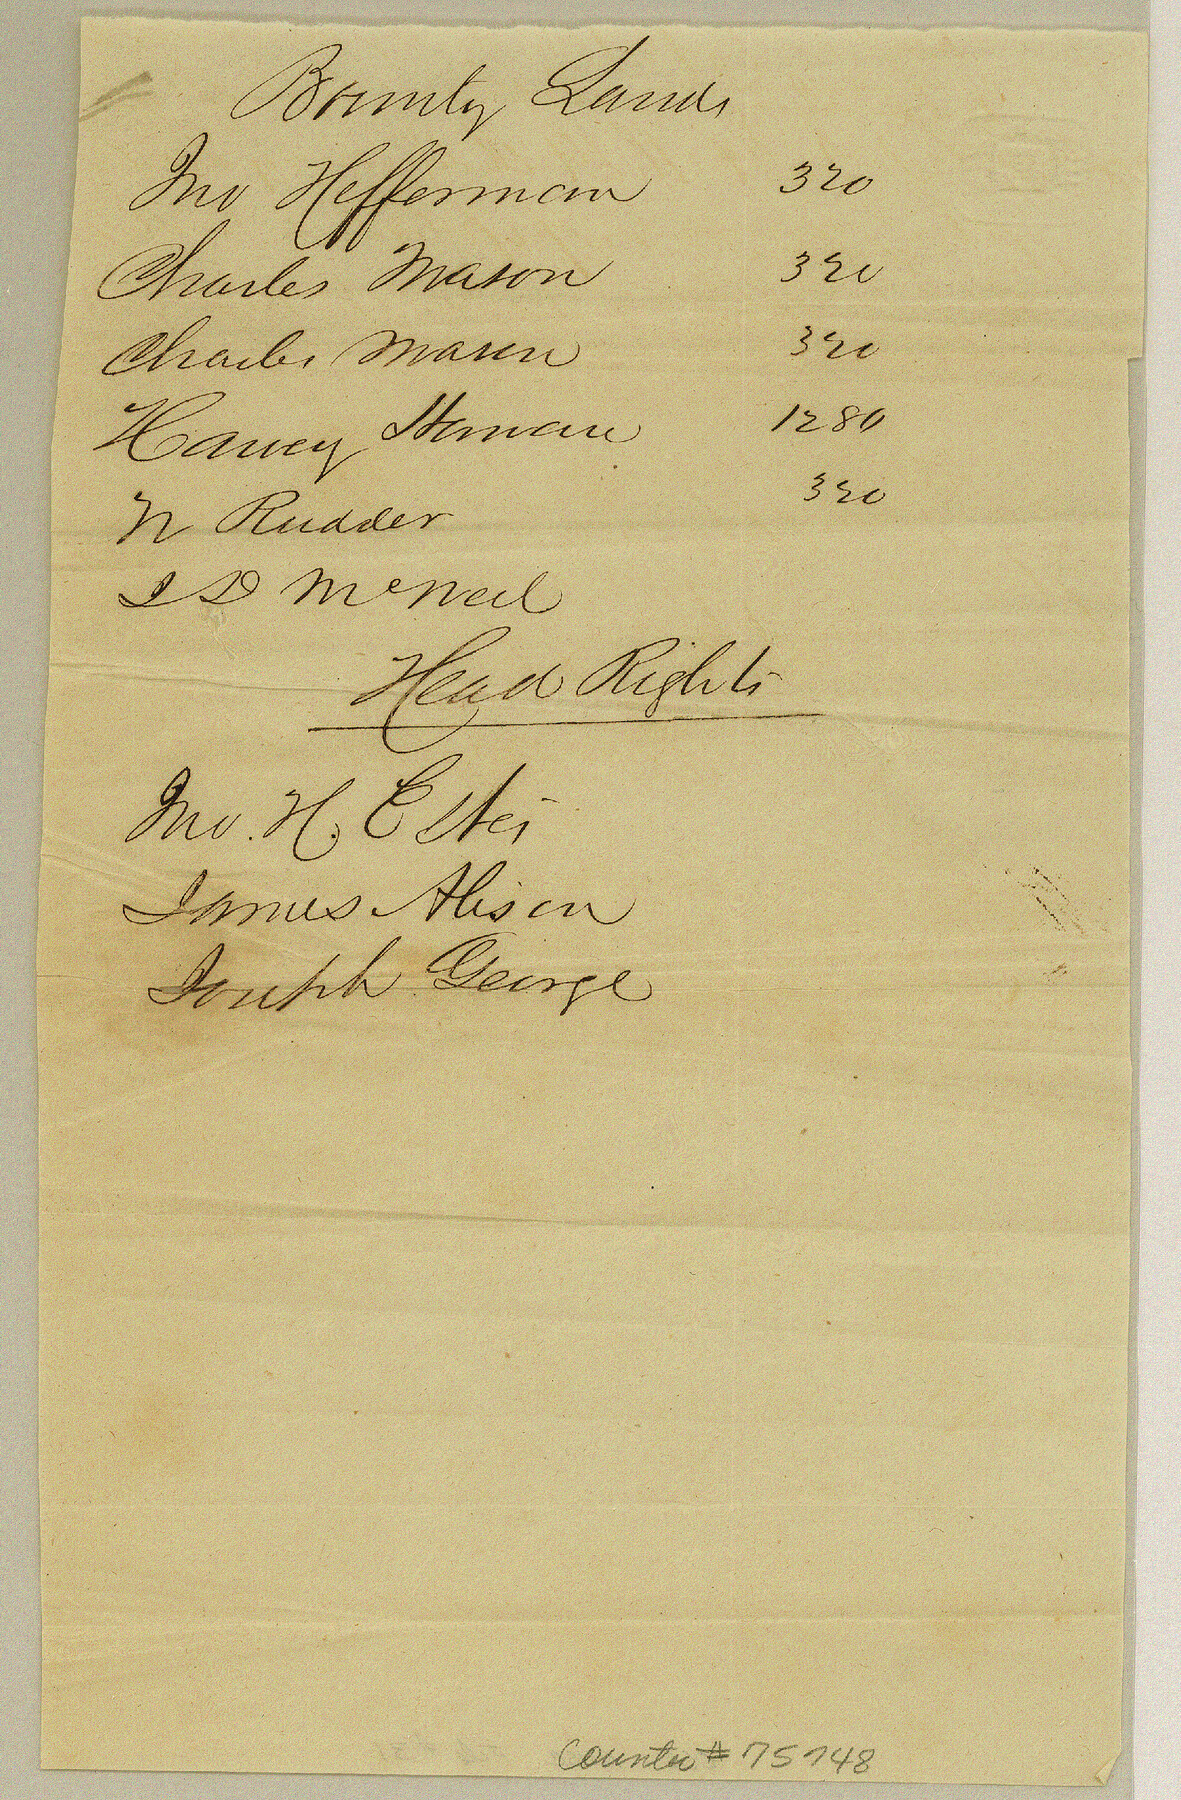 Bounty Lands
Jno Hefferman 320
Charles Mason 320
Charles Mason 320
Harvey Homan 1280
N Rudder 320
J D McNeel
Head Rights
Jno. H. Estes
James Alison
Joseph George
Counter # 75748